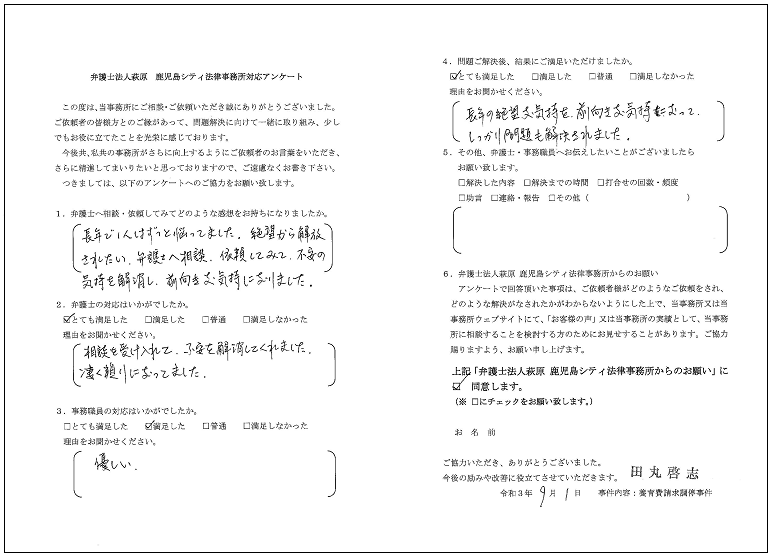 弁護士法人萩原　鹿児島シティ法律事務所対応アンケート
この度は、当事務所にご相談・ご依頼いただき誠にありがとうございました。
ご依頼者の皆様方とのご縁があって、問題解決に向けて一緒に取り組み、少し
でもお役に立てたことを光栄に感じております。
今後共、私共の事務所がさらに向上するようにご依頼者のお言葉をいただき、
さらに精進してまいりたいと思っておりますので、ご遠慮なくお書き下さい。
つきましては、以下のアンケートへのご協力をお願い致します。
１．弁護士へ相談・依頼してみてどのような感想をお持ちになりましたか。
長年で1人はずっと悩ってました。絶望から解放
されたい。弁護士へ相談、依頼してみて、不安の
気持を解消し、前向きな気持になりました。
２．弁護士の対応はいかがでしたか。
☑とても満足した　□満足した　□普通　□満足しなかった
理由をお聞かせください。
相談を受け入れて、不安を解消してくれました。
凄く頼りになってました。
３．事務職員の対応はいかがでしたか。
□とても満足した　☑満足した　□普通　□満足しなかった
理由をお聞かせください。
優しい。
４．問題ご解決後、結果にご満足いただけましたか。
☑とても満足した　□満足した　□普通　□満足しなかった
理由をお聞かせください。
長年の絶望な気持を、前向きな気持になって、
しっかり問題も解決されました。
５．その他、弁護士・事務職員へお伝えしたいことがございましたら
お願い致します。
□解決した内容　□解決までの時間　□打合せの回数・頻度
□助言　□連絡・報告　□その他（　　　　　　　　）
６．弁護士法人萩原 鹿児島シティ法律事務所からのお願い
アンケートで回答頂いた事項は、ご依頼者様がどのようなご依頼をされ、
どのような解決がなされたかがわからないようにした上で、当事務所又は当
事務所ウェブサイトにて、「お客様の声」又は当事務所の実績として、当事務
所に相談することを検討する方のためにお見せすることがあります。ご協力
賜りますよう、お願い申し上げます。
上記「弁護士法人萩原 鹿児島シティ法律事務所からのお願い」に
☑　同意します。
（※ □にチェックをお願い致します。）
お　名　前
ご協力いただき、ありがとうございました。
今後の励みや改善に役立てさせていただきます。　田丸啓志
令和３年　9月　1日　事件内容：養育費請求調停事件